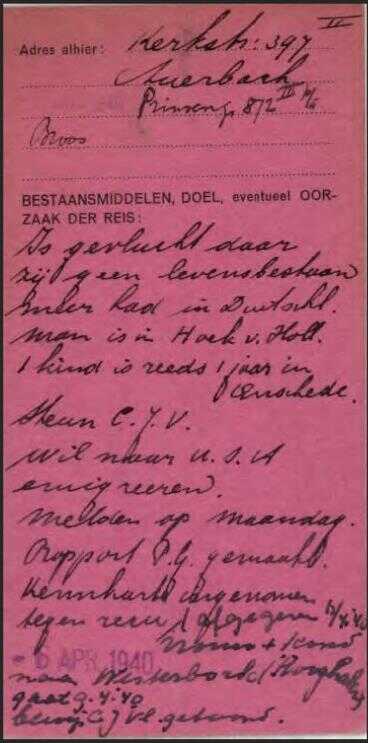 Adres alhier: Kerkstr: 397 II
Auerbach
Prinseng. 872 III
Broos
BESTAANSMIDDELEN, DOEL, eventueel OOR-
ZAAK DER REIS:
Is gevlucht daar
zij geen levensbestaan
meer had in Duitschl.
man is in Hoek v. Holl.
1 kind is reeds 1 jaar in
Enschede.
Steun C.J.V.
Wil naar U.S.A
emigreeren.
Melden op maandag.
Rapport P.G. gemaakt.
Kennkarte ingenomen
tegen recu / afgegeven 6/4 '40
- 6 APR 1940 + Kind
naar Westerbork
gaat 9.4.40
bewijs C J Vl. getoond.